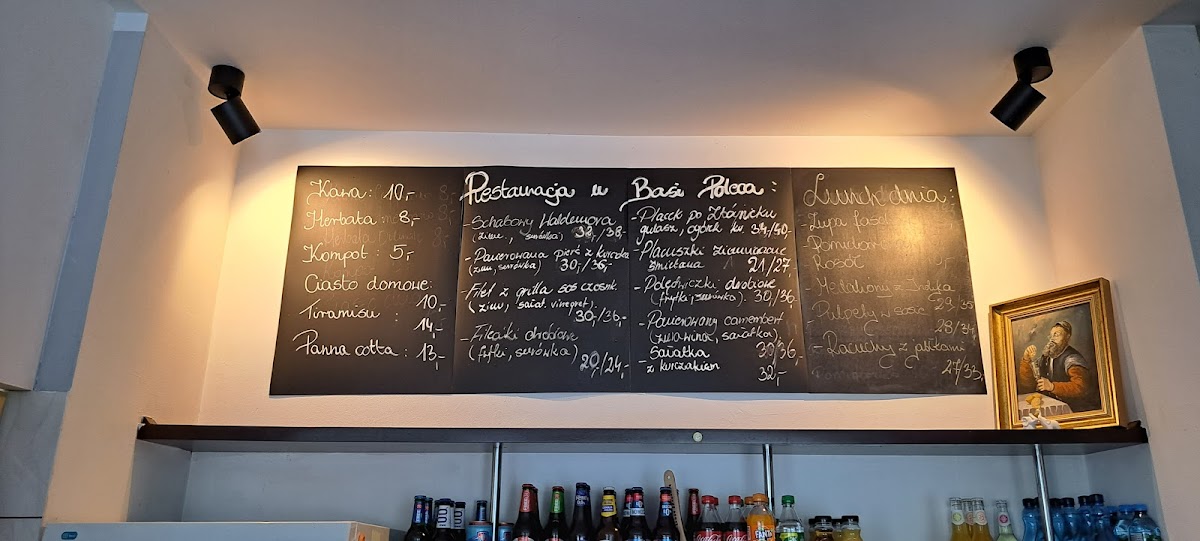 Kawa: 10,-
Herbata: 8,-
Kompot: 5,-
Ciasto domowe:
10,-
Tiramisu :
14,-
Panna cotta : 13,-
Restauracja u
- Schabowy Haldemora
(ziem., surówka) 32,/38,-
- Panierowana pierś z kurczaka
(ziem, surówka) 30,/36,-
- Filet z grilla sos czosnk.
(ziem, sałat. vinegret).
30,/36,-
(frytki, surówka)
20,/24,-
Basi Poleca :
- Placek po Zbójnicku
gulasz, ogórek kw. 34,/40,-
- Placuszki ziemniaczane
śmietana 21/27
- Polędwiczki drobiowe
(frytki, surówka). 30,/36.
- Panierowany camembert
(żurawina, sałatka)
30/36,-
Sałatka
z kurczakiem
32,-
Lunch dnia:
Zupa
Rosół
- Medaliony z Indyka
29,/35
Pulpety w sosie
28/34,
- Racuchy z jabłkami
27/33,-
FANTA